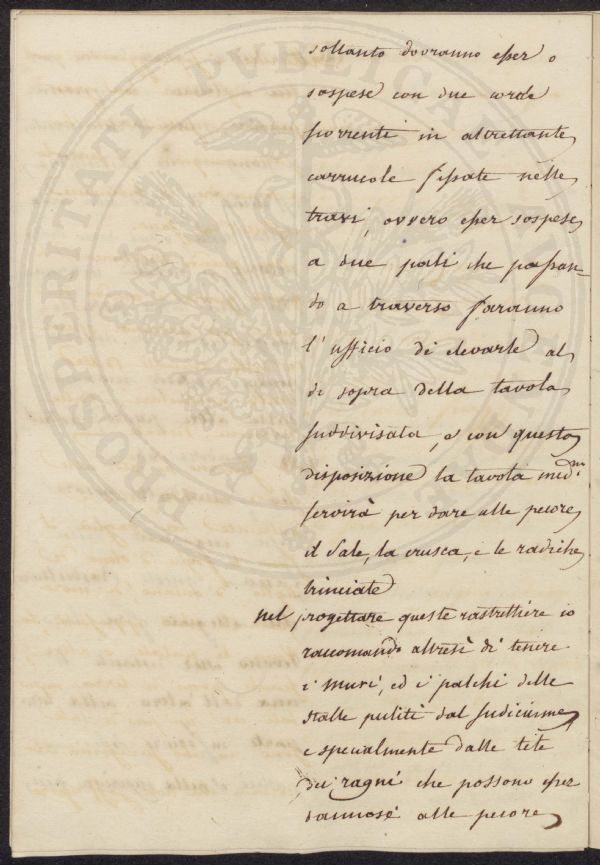 soltanto dovranno esser o
sospese con due corde
scorrenti in altrettante
carrucole fissate nelle
travi, ovvero esser sospese
a due pali che passan-
do a traverso faranno
l'ufficio di elevarle al
di sopra della tavola
suddivisata, e con questa
disposizione la tavola med.ma
servirà per dare alle pecore
il Sale, la crusca, e le radiche
trinciate
nel progettare queste rastrelliere io
raccomando altresì di tenere
i muri, ed i palchi delle
stalle puliti dal sudiciume
e specialmente dalle tele
dei ragni che possono esser
dannose alle pecore
PROSPERITATI PUBLICAE